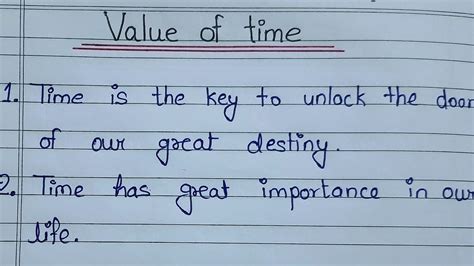 Value of time
1. Time is the key to unlock the door
of our great destiny.
2. Time has great importance in our
life.